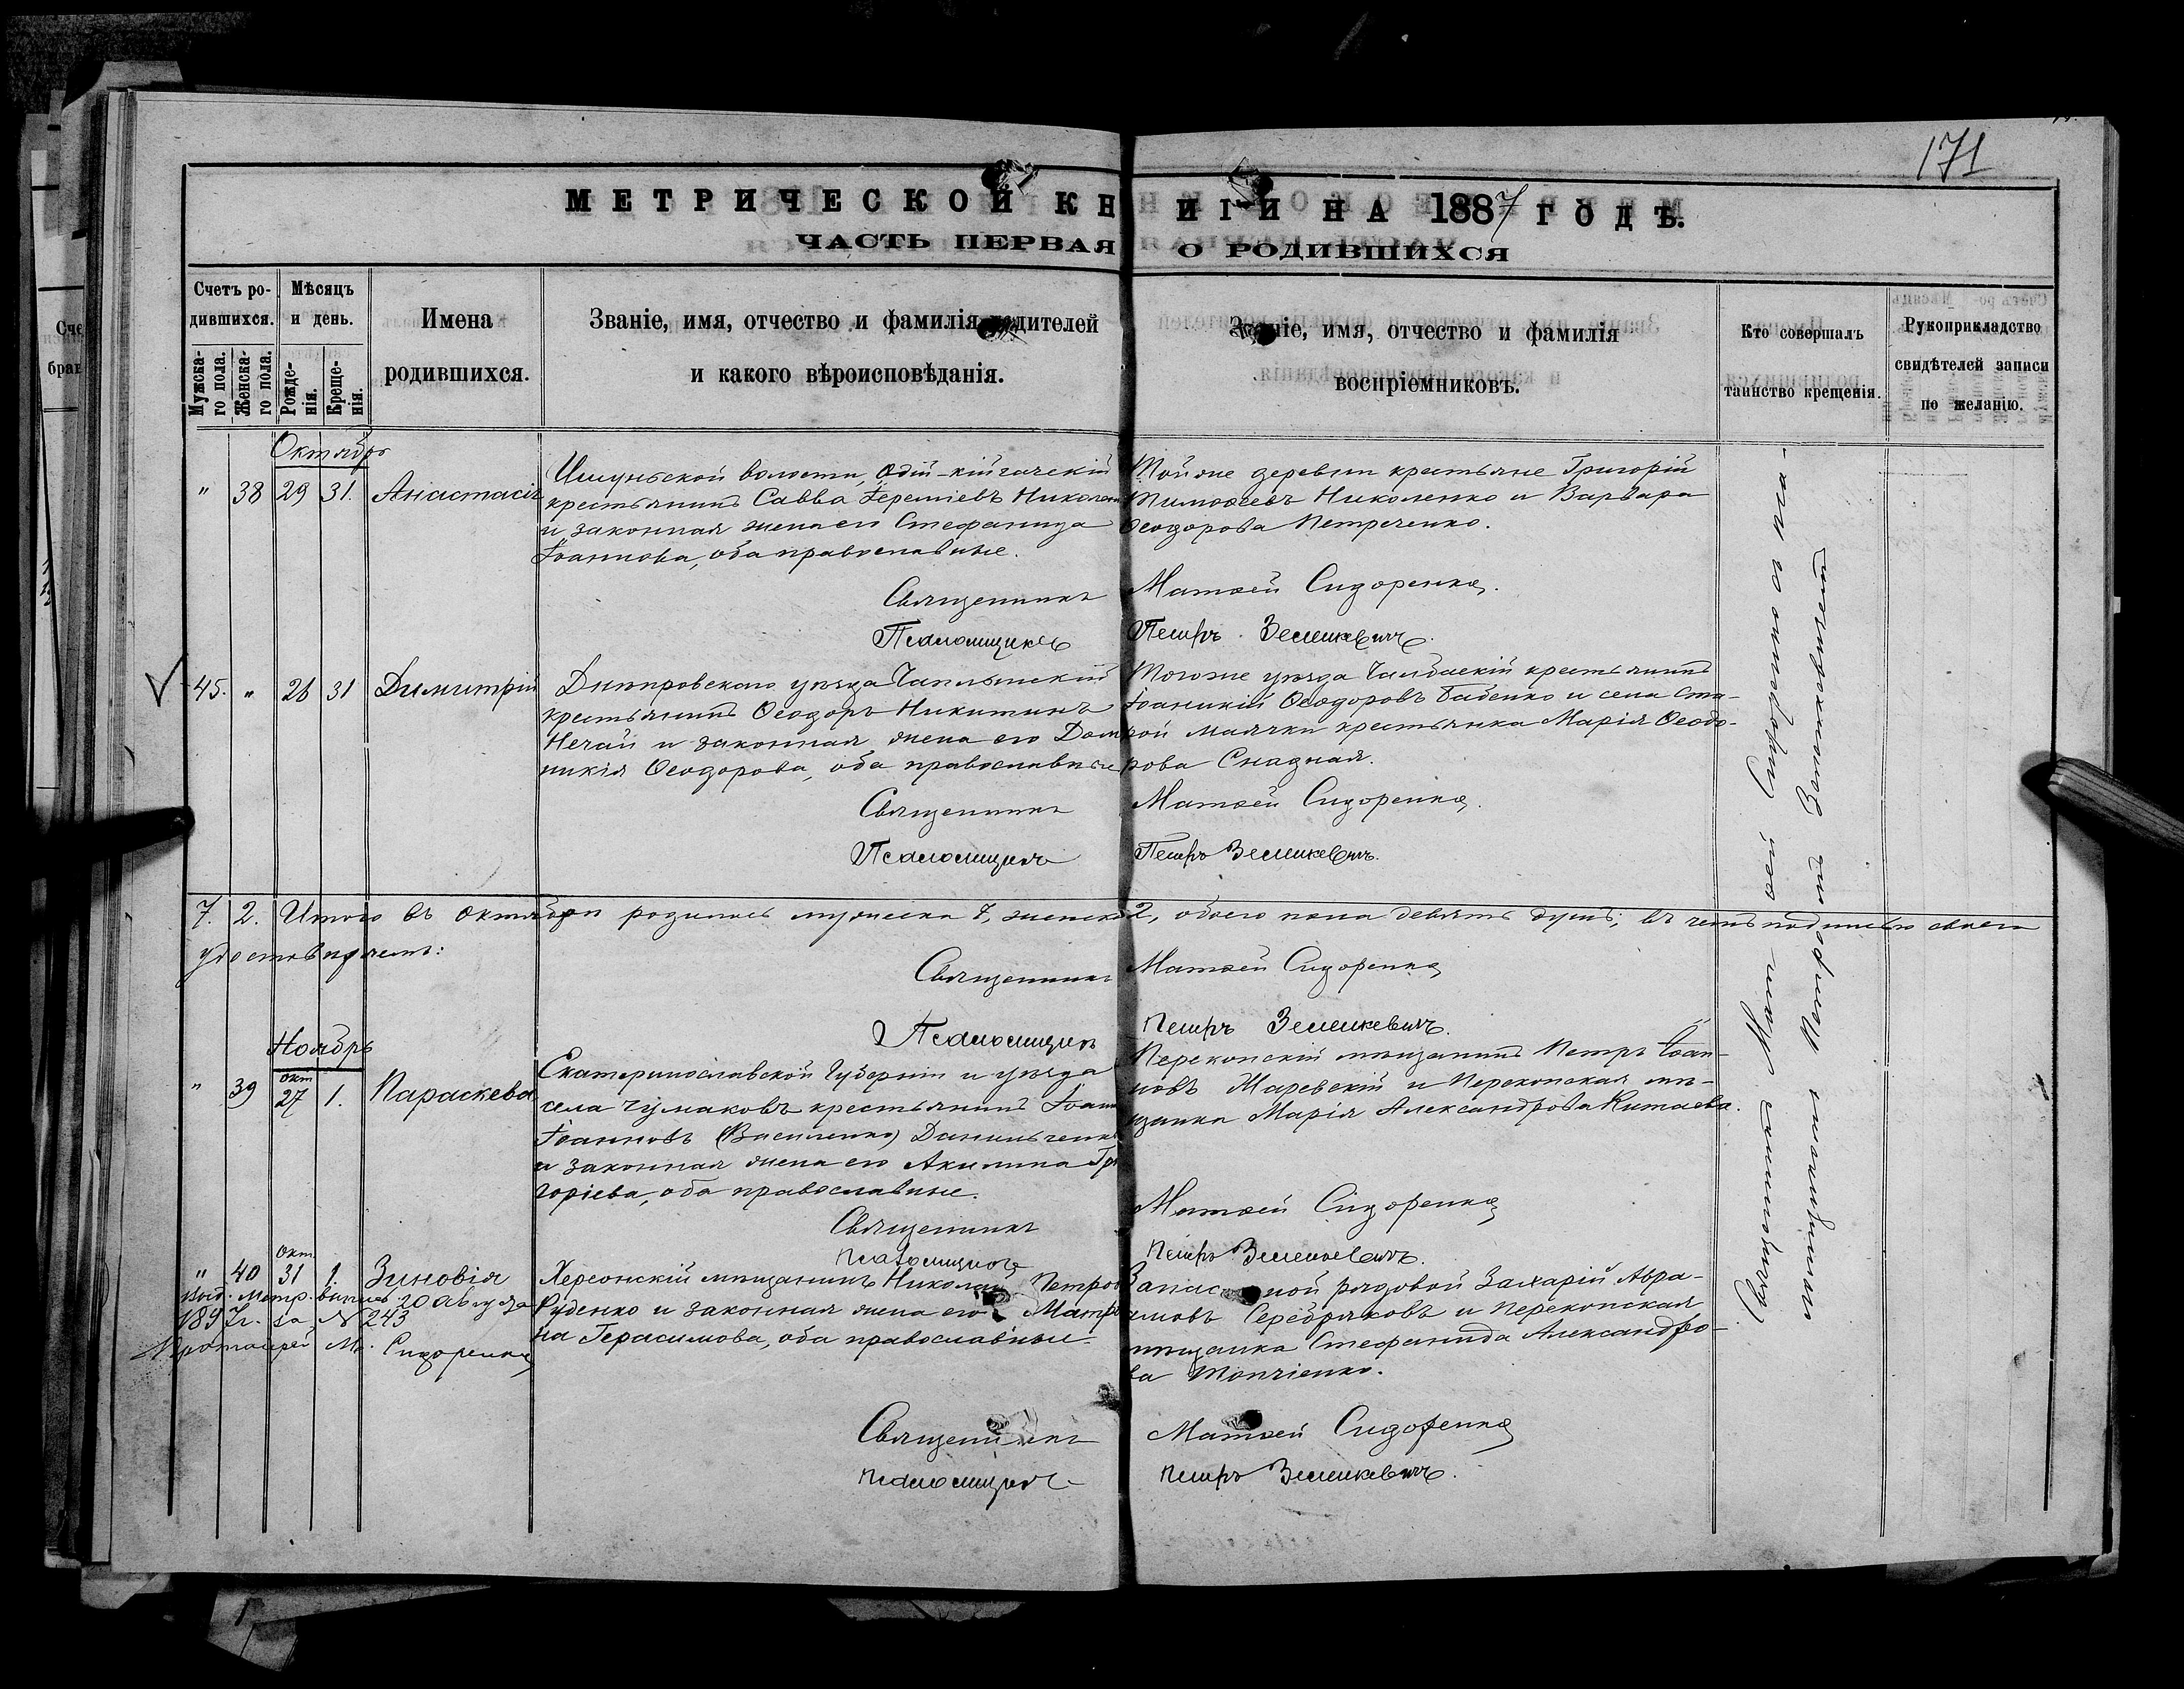 171
МЕТРИЧЕСКОЙ КНИГИ НА 1887 ГОДЪ.
ЧАСТЬ ПЕРВАЯ О РОДИВШИХСЯ
Счетъ родившихся.
Мужска-
го пола.
Женска-
го пола.
Мѣсяцъ
и день.
Рожде-
нія.
Креще-
нія.
Имена
родившихся.
Званіе, имя, отчество и фамилія родителей
и какого вѣроисповѣданія.
Званіе, имя, отчество и фамилія
воспріемниковъ.
Кто совершалъ
таинство крещенія.
Рукоприкладство
свидѣтелей записи
по желанію.
Октябрь
" 38 29 31. Анастасія
волости,
крестьянинъ Савва Іереміевъ
и законная жена его Стефанида
Іоаннова, оба православные.
Той же деревни крестьяне Григорій
Тимоѳеевъ Николенко и Варвара
Ѳеодорова Петреченко.
Священникъ Матѳей Сидоренко
Псаломщикъ Петръ
45. " 26 31 Димитрій
Днѣпровскаго уѣзда Чаплынскій
крестьянинъ Ѳеодоръ Никитинъ
Нечай и законная жена его Дом-
никія Ѳеодорова, оба православные
Того же уѣзда Чалбаскій крестьянинъ
Іоанникій Ѳеодоровъ Бабенко и села Ста-
рой Маячки крестьянка Марія Ѳеодо-
рова
Священникъ Матѳей Сидоренко
Псаломщикъ Петръ
7. 2. Итого въ октябрѣ родилось мужеска 7, женска 2, обоего пола девять душъ; въ чемъ подписью своею
удостовѣряемъ:
Священникъ Матѳей Сидоренко
Псаломщикъ Петръ
Ноябрь
" 39 окт 27 1. Параскева
Екатеринославской Губерніи и уѣзда
села Чумаковъ крестьянинъ Іоаннъ
Іоанновъ (Василенко) Данильченко
и законная жена его Акилина Гри-
горіева, оба православные.
Перекопскій мѣщанинъ Петръ Іоан-
новъ Маревскій и Перекопская мѣ-
щанка Марія Александрова Китаева.
Священникъ Матѳей Сидоренко
Псаломщикъ Петръ
" 40 окт 31 1. Зиновія
Выд. Метр. выпись 20 Августа
1897 г. за № 243
Протоіерей М. Сидоренко
Херсонскій мѣщанинъ Николай Петровъ
Руденко и законная жена его Матро-
на Герасимова, оба православные.
Запасной рядовой Захарій Авра-
мовъ Серебряковъ и Перекопская
мѣщанка Стефанида Александро-
ва
Священникъ Матѳей Сидоренко
Псаломщикъ Петръ
Священникъ Матѳей Сидоренко съ
псаломщикомъ Петромъ